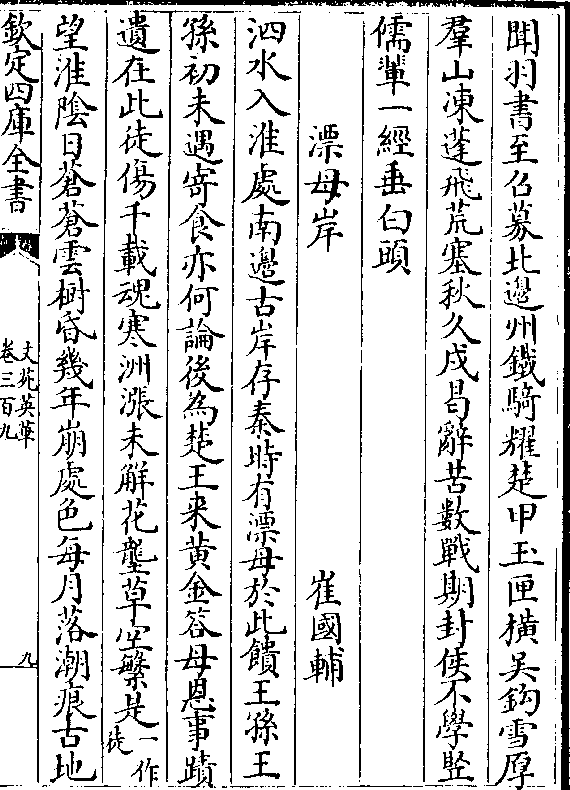 聞羽書至召募北邊州鐵騎耀楚甲玉匣橫吴鈎雪厚
羣山凍蓬飛荒塞秋久戍曷辭苦數戰期封侯不學竪
儒輩一經垂白頭
漂母岸 崔國輔
泗水入淮處南邊古岸存秦時有漂母於此饋王孫王
孫初未遇寄食亦何論後為楚王来黄金答母恩事蹟
遺在此徒傷千載魂寒洲漲未解花壟草空繁是一作徒
望淮隂日蒼蒼雲樹昏幾年崩處色每月落潮痕古地
欽定四庫全書
文苑英華
卷三百九
九